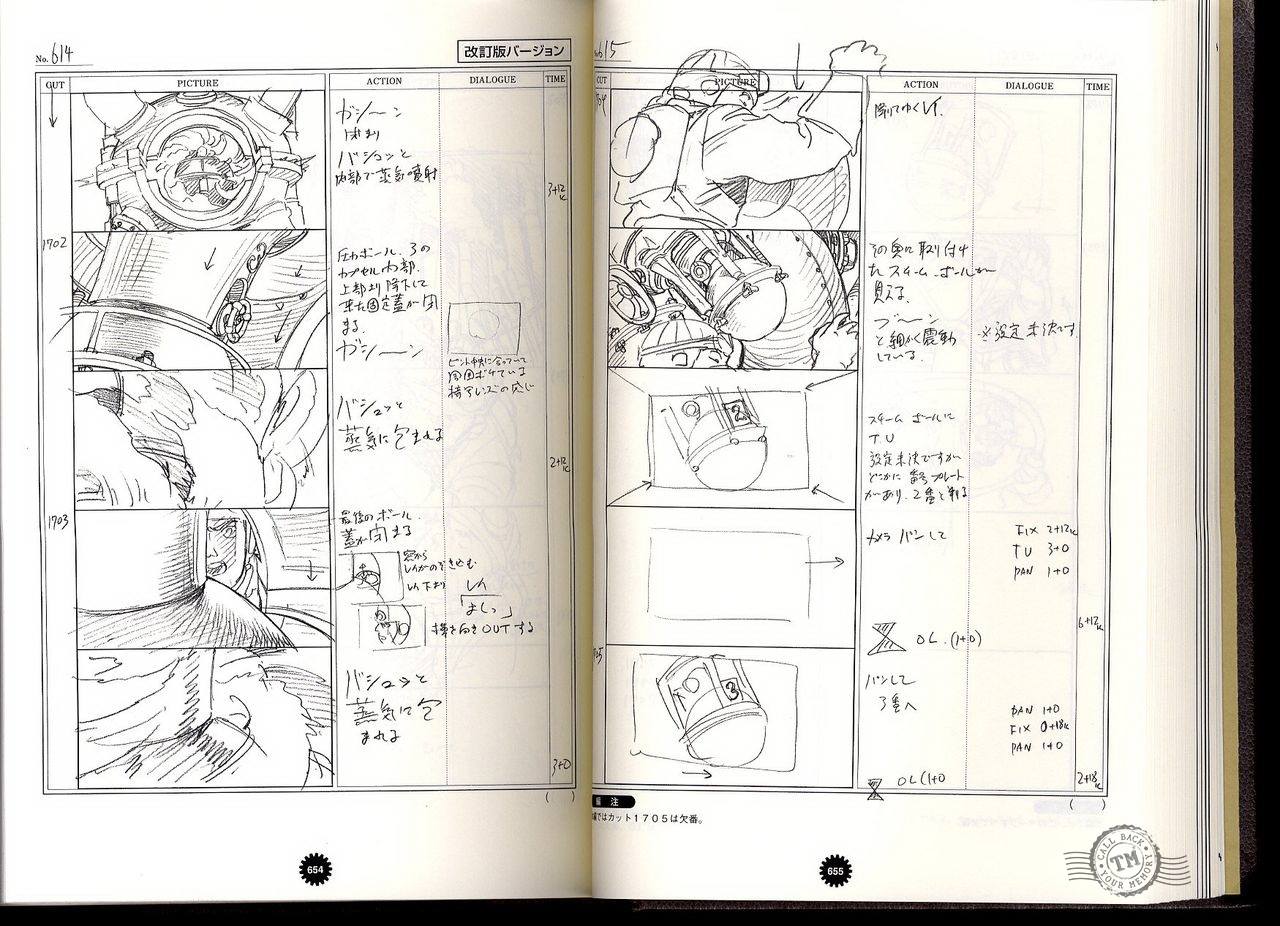 No. 614
改訂版バージョン
CUT
PICTURE
ACTION
DIALOGUE
TIME
ガシーン
バシュッと
内部で蒸気噴射
3+12K
1702
圧力ボール、その
カプセル内部.
上部より降下して
来た固定蓋が閉
まる.
ガシーン
ピント中央に合っていて
周囲ボケている
バシュッと
蒸気に包まれる
2+12K
1703
最後のボール.
蓋が閉まる
窓から
レイがのぞき込む
レイ下より
レイ
「よしっ」
横を向きOUTする
バシュッと
蒸気に包
まれる
3+0
( )
654
615
CUT
PICTURE
ACTION
DIALOGUE
TIME
降りてゆくレイ.
その奥に取り付け
たスチームボールが
見える.
ブーン
と細かく震動
している.
※設定未決です
2
スチームボールに
T.U
設定未決ですが
どこかに番号プレート
があり、2番と判る
カメラパンして
FIX 2+12K
TU 3+0
PAN 1+0
6+12K
OL.(1+0)
3
パンして
3番へ
PAN 1+0
FIX 0+18K
PAN 1+0
OL(1+0
2+18K
( )
備 注
ではカット1705は欠番。
655
CALL BACK
TM
YOUR MEMORY